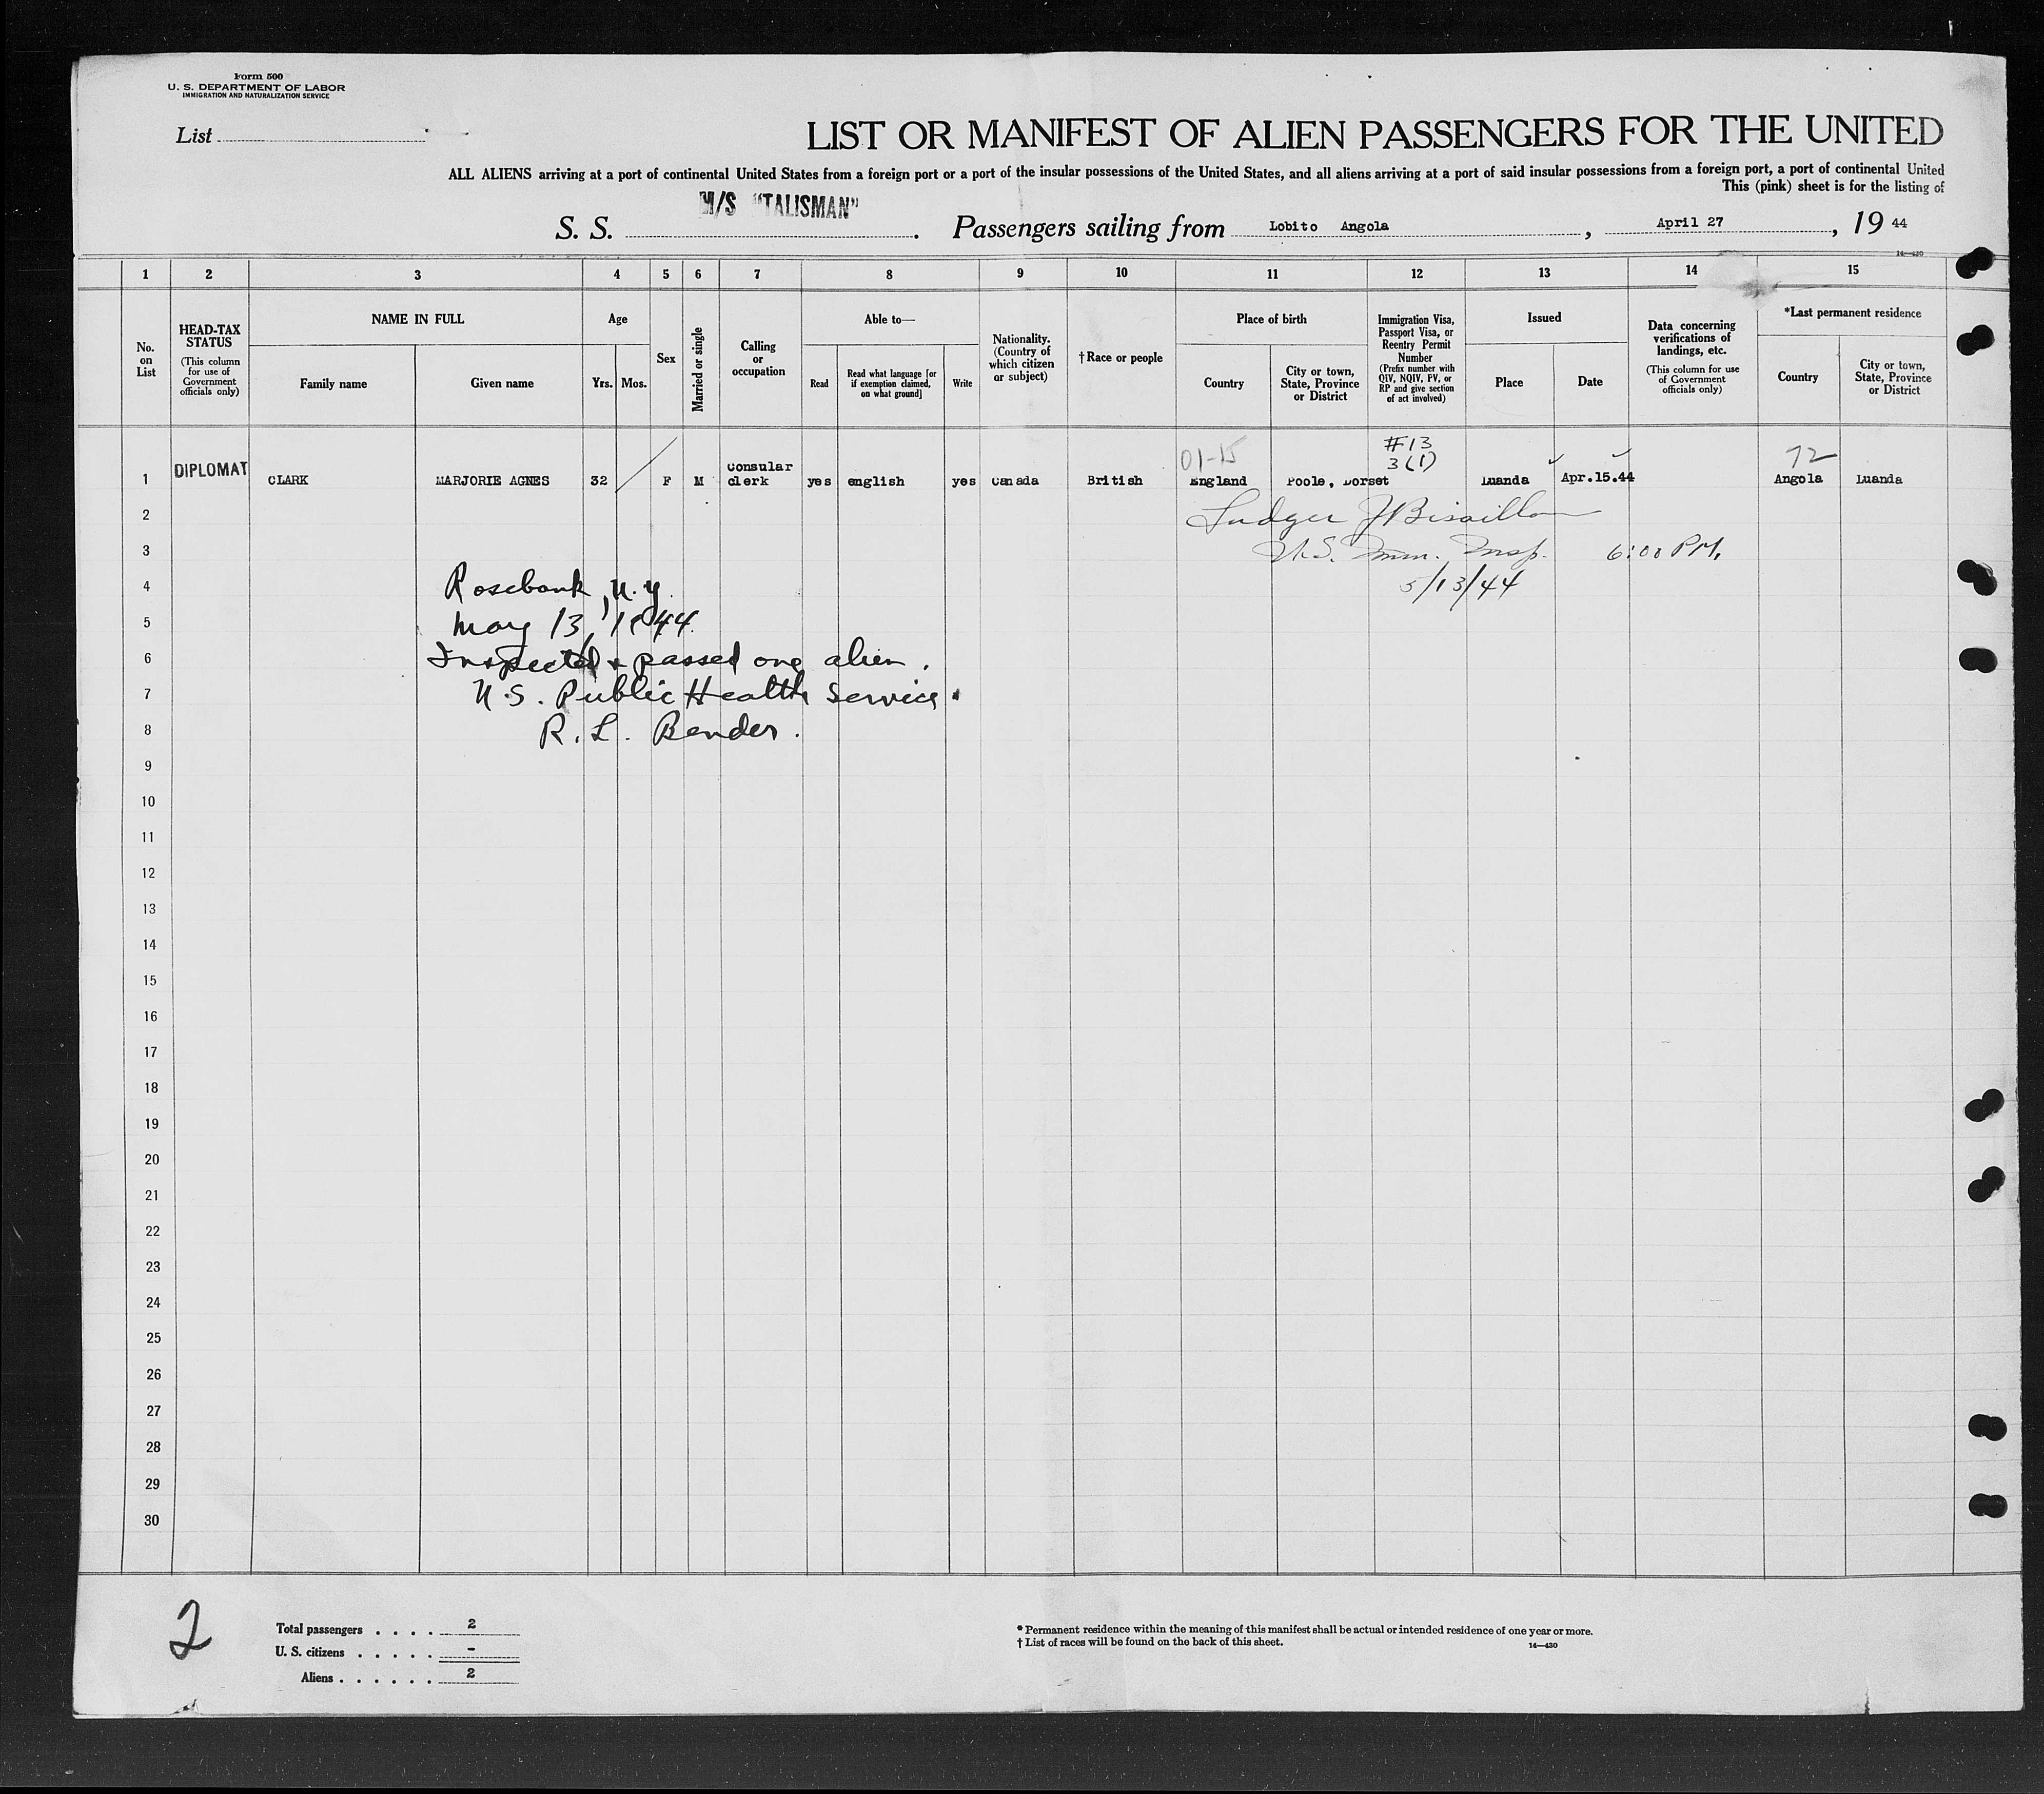 Form 500
U. S. DEPARTMENT OF LABOR
IMMIGRATION AND NATURALIZATION SERVICE
List
LIST OR MANIFEST OF ALIEN PASSENGERS FOR THE UNITED
ALL ALIENS arriving at a port of continental United States from a foreign port or a port of the insular possessions of the United States, and all aliens arriving at a port of said insular possessions from a foreign port, a port of continental United
This (pink) sheet is for the listing of
S. S. M/S "TALISMAN". Passengers sailing from Lobito Angola, April 27, 19 44
14—430
1 2 3 4 5 6 7 8 9 10 11 12 13 14 15
No. on List
HEAD-TAX STATUS (This column for use of Government officials only)
NAME IN FULL
Family name
Given name
Age
Yrs. Mos.
Sex
Married or single
Calling or occupation
Able to—
Read
Read what language [or if exemption claimed, on what ground]
Write
Nationality. (Country of which citizen or subject)
†Race or people
Place of birth
Country
City or town, State, Province or District
Immigration Visa, Passport Visa, or Reentry Permit Number (Prefix number with QIV, NQIV, PV, or RP and give section of act involved)
Issued
Place
Date
Data concerning verifications of landings, etc. (This column for use of Government officials only)
*Last permanent residence
Country
City or town, State, Province or District
01-15 #13 3(1) 72
1 DIPLOMAT CLARK MARJORIE AGNES 32 F M Consular clerk yes english yes Canada British England Poole, Dorset Luanda Apr.15.44 Angola Luanda
2 Ludger J Bisaillon
3 U.S. Imm. Insp. 6:00 PM.
4 Rosebank, N.Y. 5/13/44
5 May 13, 1944.
6 Inspected & passed one alien.
7 U.S. Public Health Service.
8 R. L. Bender.
9
10
11
12
13
14
15
16
17
18
19
20
21
22
23
24
25
26
27
28
29
30
2
Total passengers . . . . 2
U. S. citizens . . . . . -
Aliens . . . . . . 2
* Permanent residence within the meaning of this manifest shall be actual or intended residence of one year or more.
† List of races will be found on the back of this sheet.
14—430